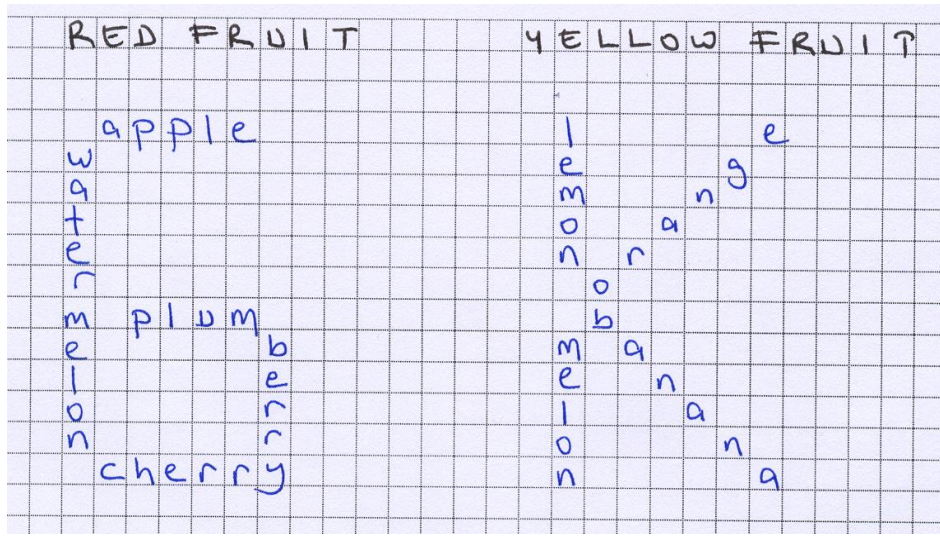 RED FRUIT
apple
watermelon
plum
berry
cherry
YELLOW FRUIT
lemon
orange
banana
melon